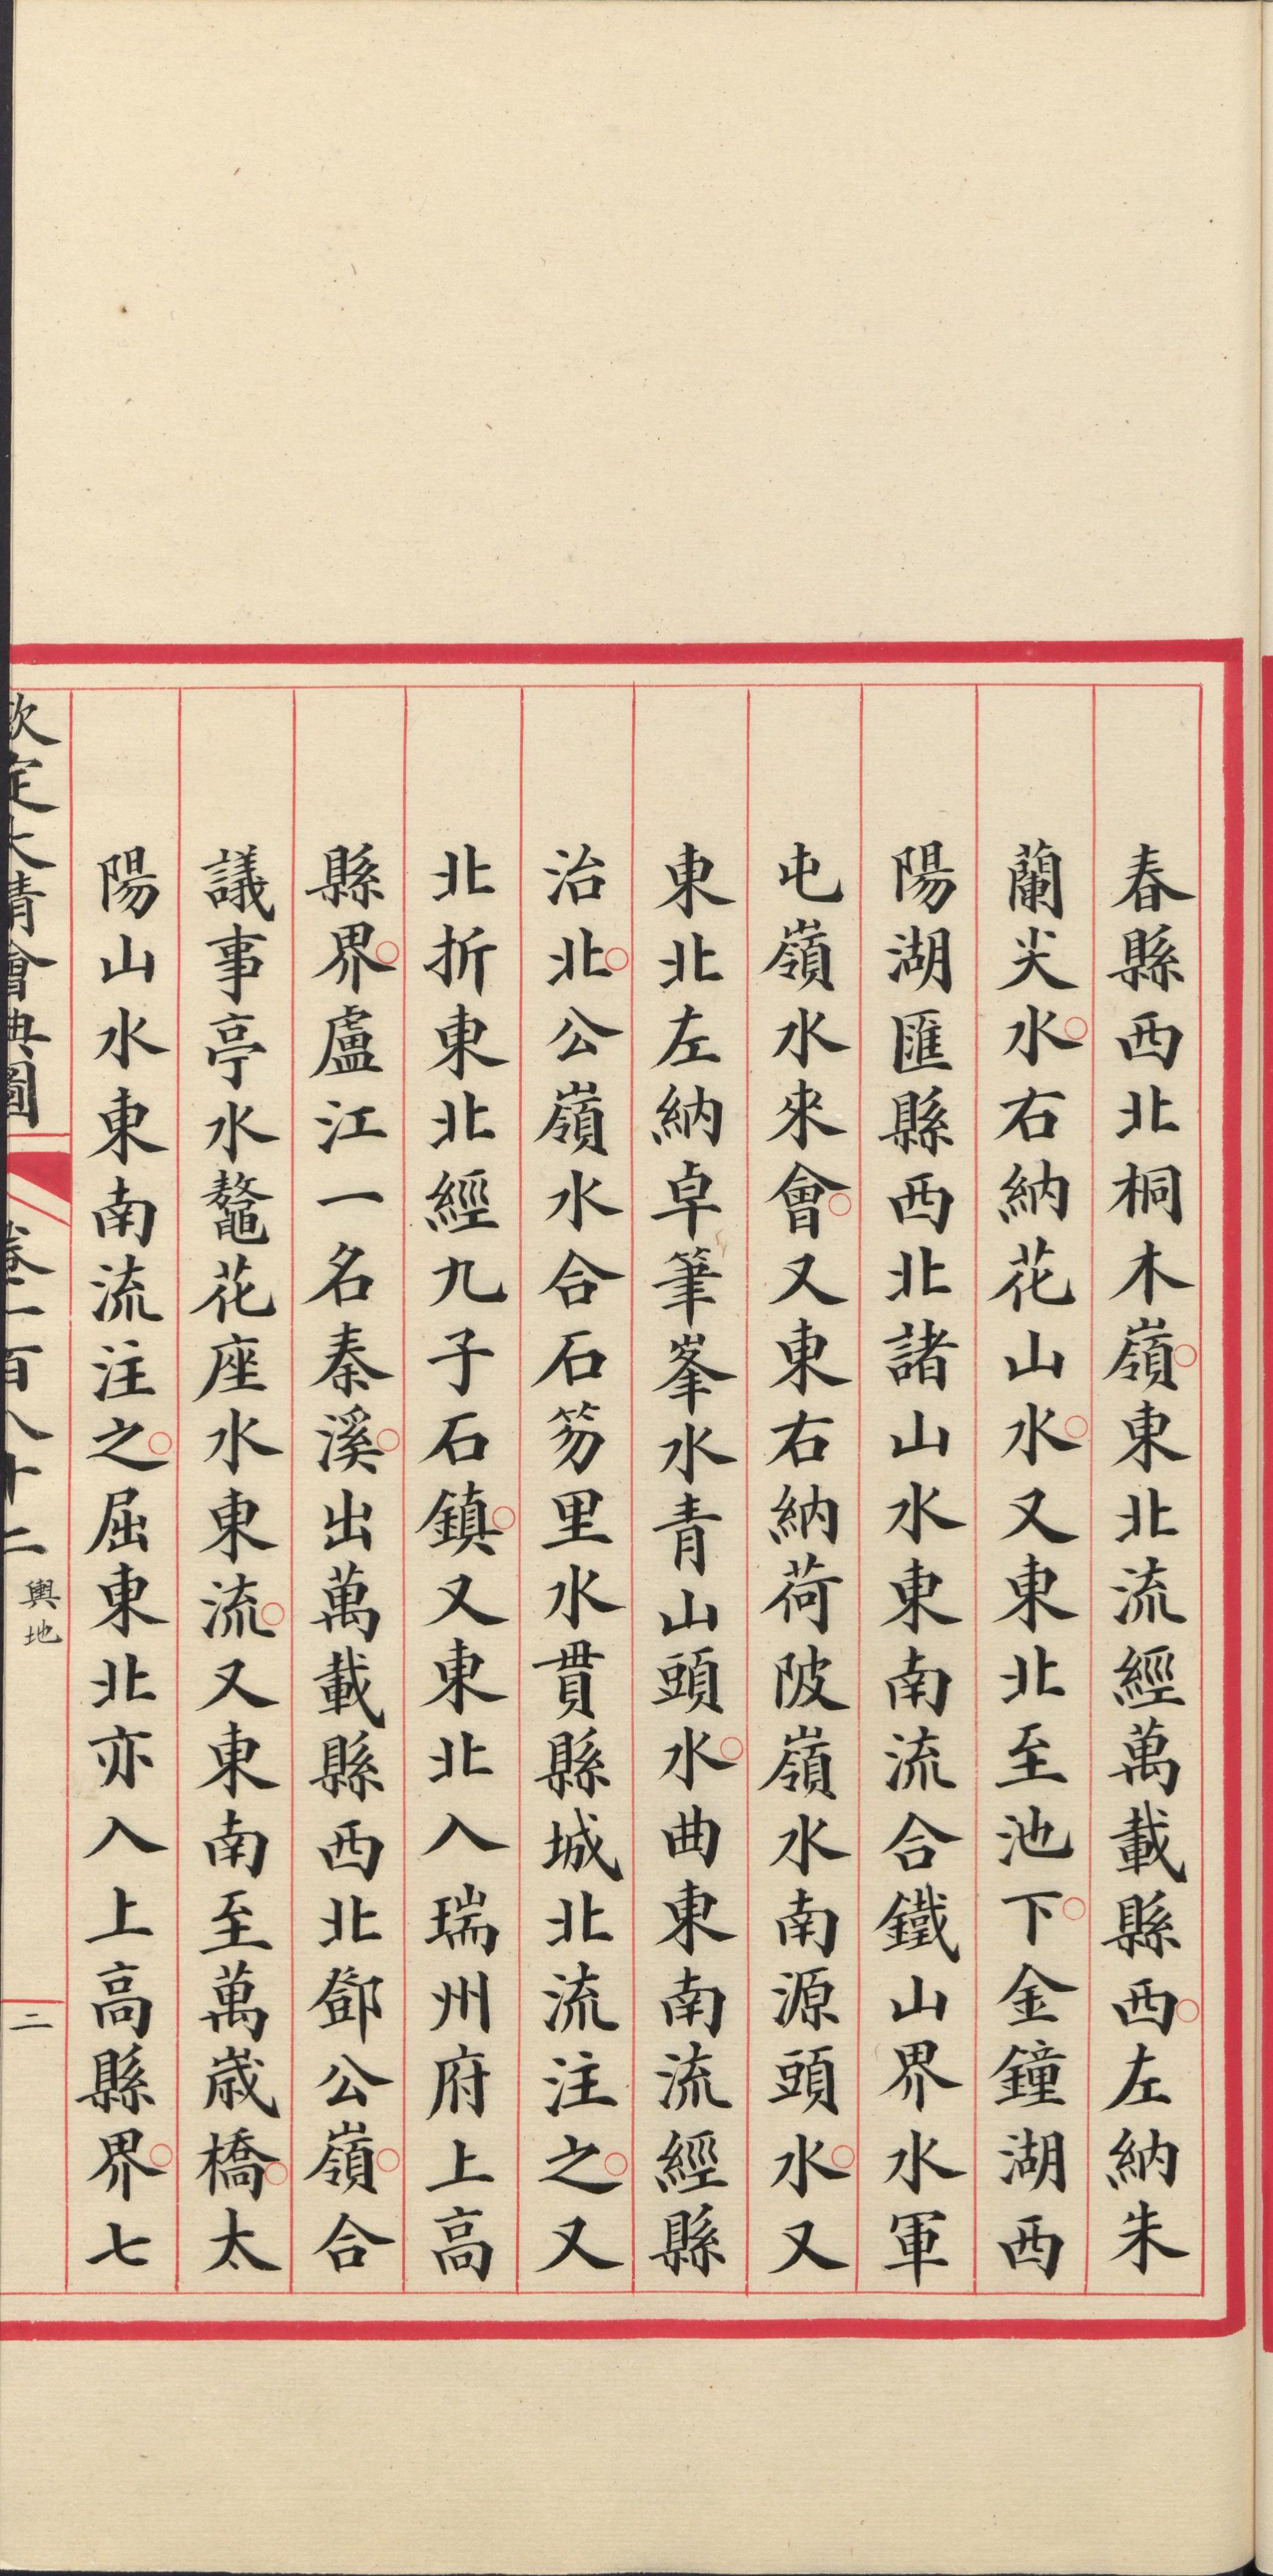 春縣西北桐木嶺○東北流經萬載縣西○左納朱
蘭尖水○右納花山水○又東北至池下○金鐘湖西
陽湖匯縣西北諸山水東南流合鐵山界水軍
屯嶺水來會○又東右納荷陂嶺水南源頭水○又
東北左納卓筆峯水青山頭水○曲東南流經縣
治北○公嶺水合石笏里水貫縣城北流注之○又
北折東北經九子石鎮○又東北入瑞州府上高
縣界○盧江一名秦溪○出萬載縣西北鄧公嶺○合
議事亭水鼇花座水東流○又東南至萬歲橋○太
陽山水東南流注之○屈東北亦入上高縣界○七
欽定大清會典圖
卷一百八十二 輿地
二